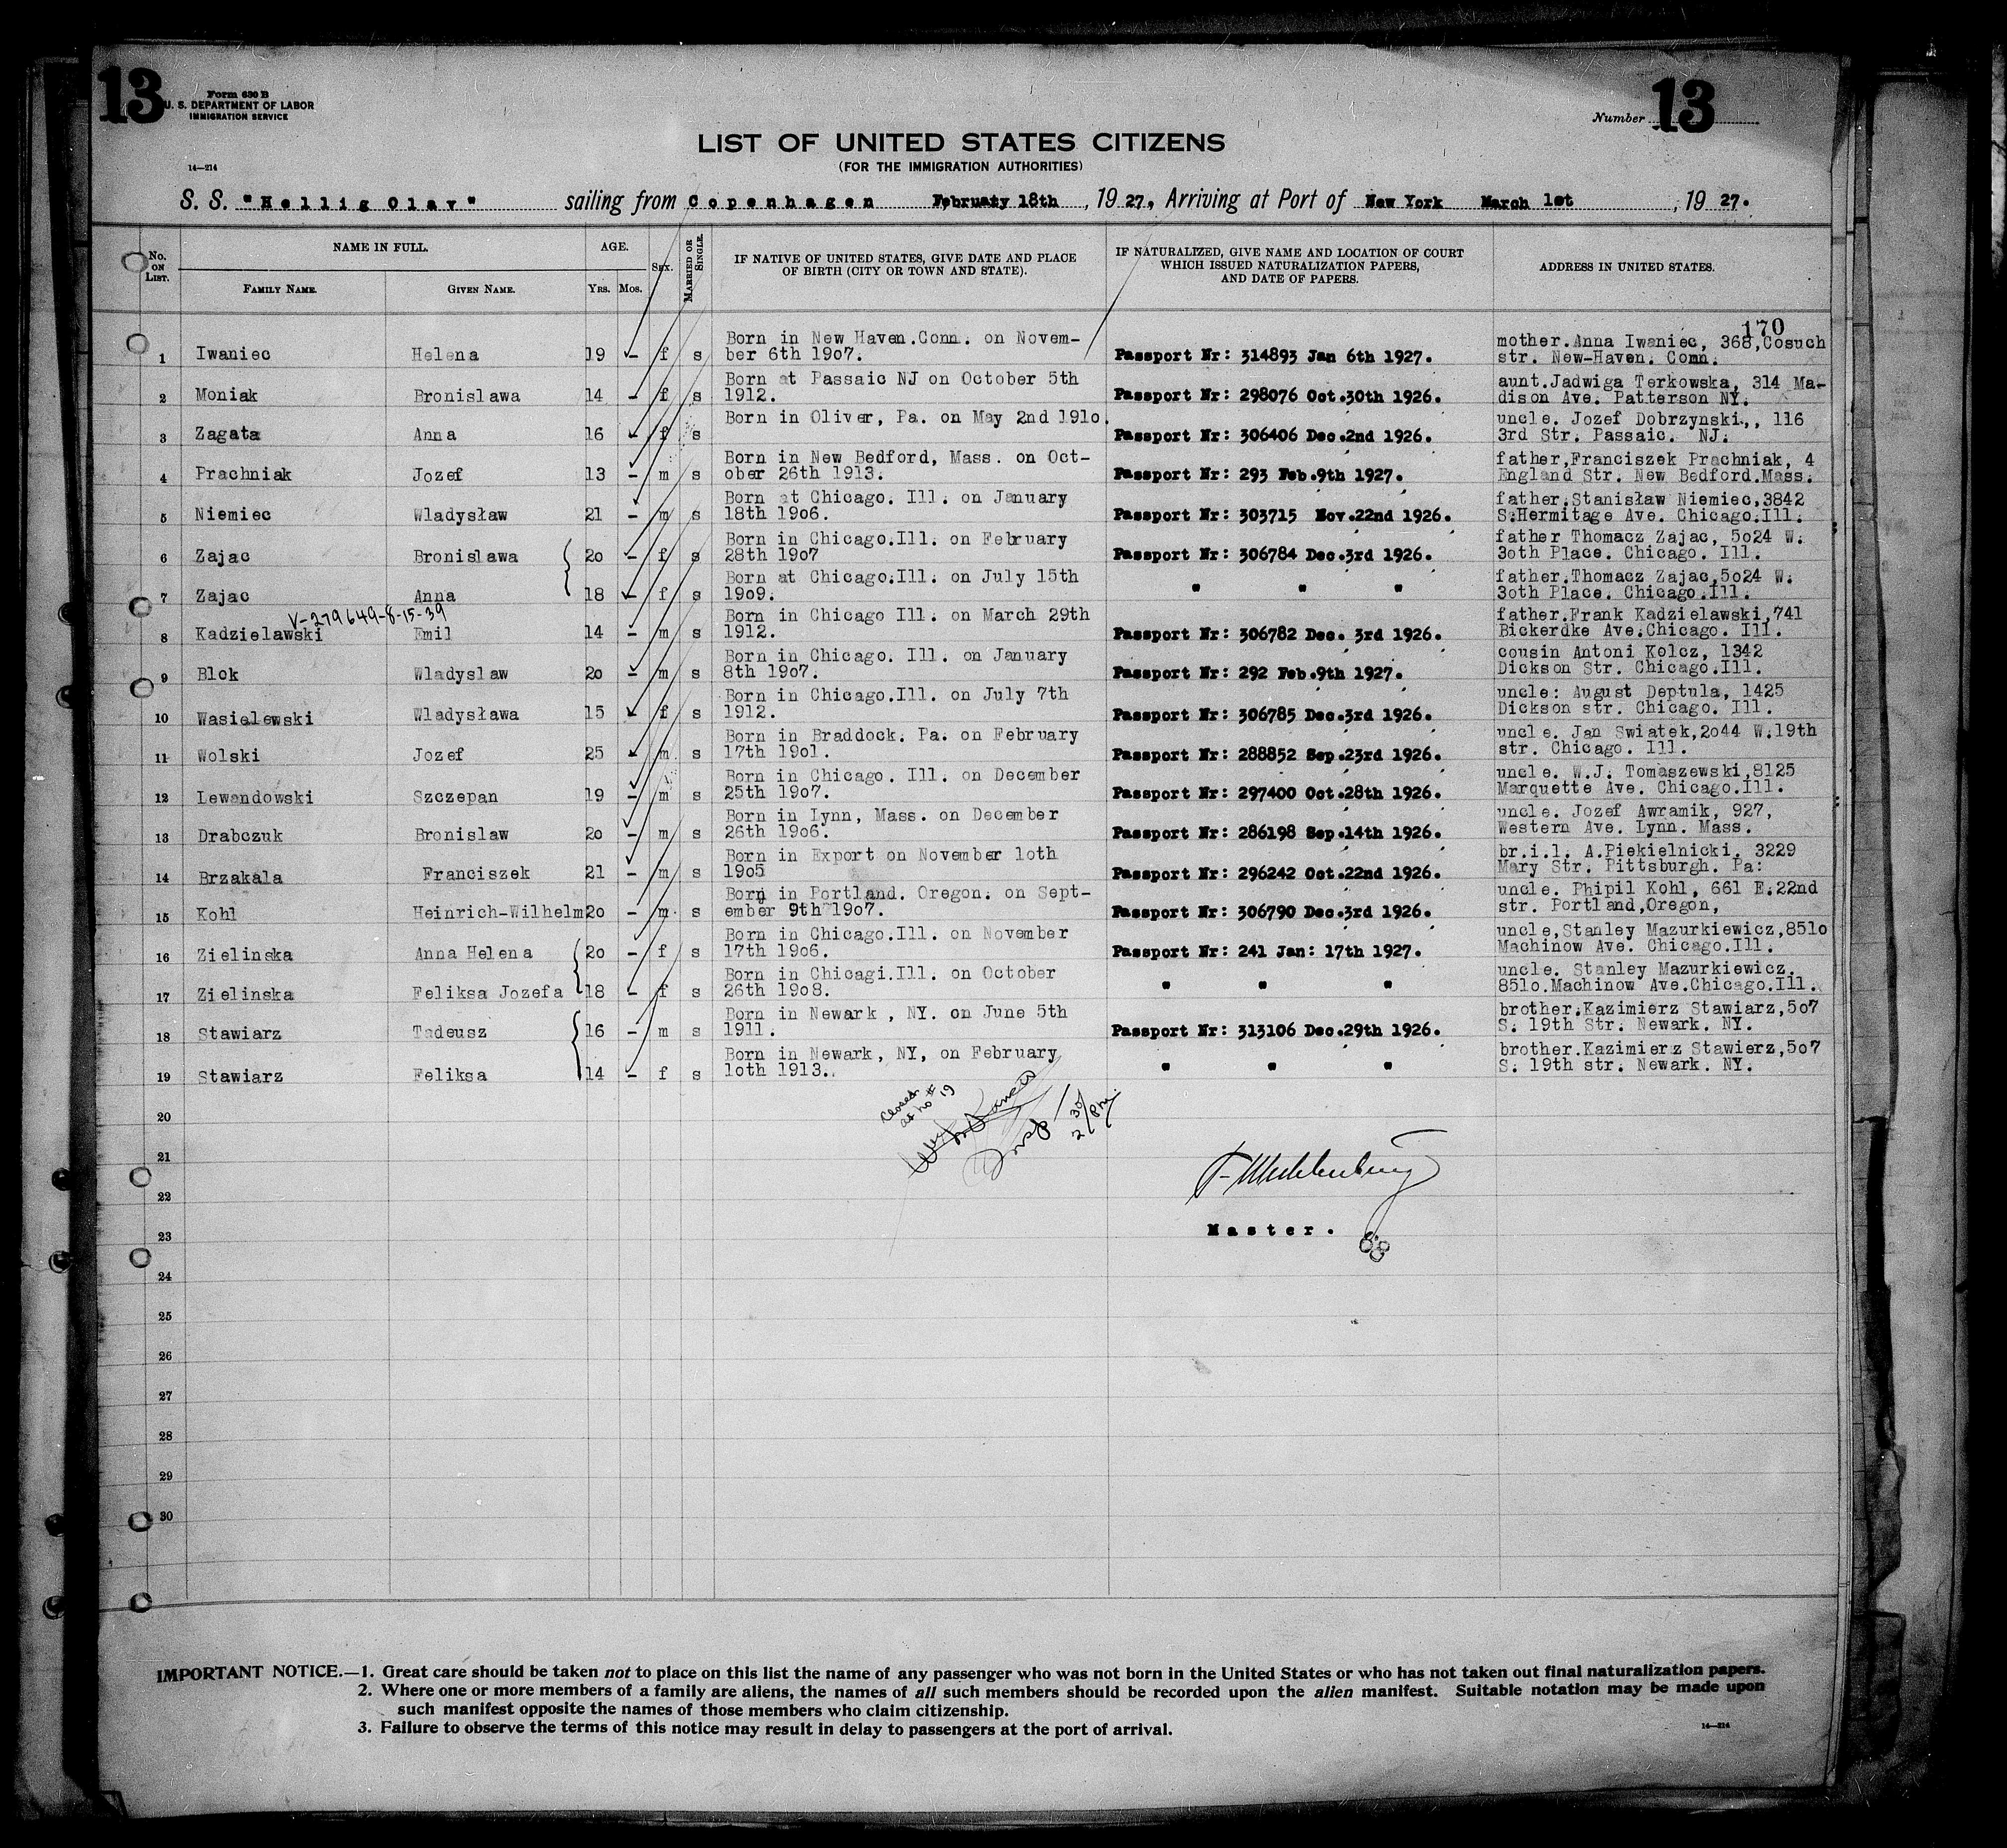 13
Form 630 B
U. S. DEPARTMENT OF LABOR
IMMIGRATION SERVICE
Number 13
LIST OF UNITED STATES CITIZENS
(FOR THE IMMIGRATION AUTHORITIES)
14—214
S. S. "Hellig Olav" sailing from Copenhagen February 18th, 1927, Arriving at Port of New York March 1st, 1927.
No. ON LIST. NAME IN FULL. AGE. SEX. MARRIED OR SINGLE. IF NATIVE OF UNITED STATES, GIVE DATE AND PLACE OF BIRTH (CITY OR TOWN AND STATE). IF NATURALIZED, GIVE NAME AND LOCATION OF COURT WHICH ISSUED NATURALIZATION PAPERS, AND DATE OF PAPERS. ADDRESS IN UNITED STATES.
FAMILY NAME. GIVEN NAME. YRS. MOS.
170
Born in New Haven.Conn. on Novem- mother.Anna Iwaniec, 368,Cosuch
1 Iwaniec Helena 19 - f s ber 6th 19o7. Passport Nr: 314893 Jan 6th 1927. str. New-Haven. Conn.
Born at Passaic NJ on October 5th aunt.Jadwiga Terkowska, 314 Ma-
2 Moniak Bronislawa 14 - f s 1912. Passport Nr: 298076 Oct.30th 1926. dison Ave. Patterson NY.
Born in Oliver, Pa. on May 2nd 191o. uncle. Jozef Dobrzynski., 116
3 Zagata Anna 16 - f s Passport Nr: 306406 Dec.2nd 1926. 3rd Str. Passaic. NJ.
Born in New Bedford, Mass. on Oct- father,Franciszek Prachniak, 4
4 Prachniak Jozef 13 - m s ober 26th 1913. Passport Nr: 293 Feb.9th 1927. England Str. New Bedford.Mass.
Born at Chicago. Ill. on January father.Stanisław Niemiec,3842
5 Niemiec Wladysław 21 - m s 18th 19o6. Passport Nr: 303715 Nov.22nd 1926. S.Hermitage Ave. Chicago.Ill.
Born in Chicago.Ill. on February father Thomacz Zajac, 5o24 W.
6 Zajac Bronislawa 2o - f s 28th 19o7 Passport Nr: 306784 Dec.3rd 1926. 3oth Place. Chicago. Ill.
Born at Chicago.Ill. on July 15th father.Thomacz Zajac,5o24 W.
7 Zajac Anna 18 - f s 19o9. " " " 3oth Place. Chicago.Ill.
V-279649-8-15-39
Born in Chicago Ill. on March 29th father.Frank Kadzielawski,741
8 Kadzielawski Emil 14 - m s 1912. Passport Nr: 306782 Dec. 3rd 1926. Bickerdke Ave.Chicago. Ill.
Born in Chicago. Ill. on January cousin Antoni Kolcz, 1342
9 Blok Wladyslaw 2o - m s 8th 19o7. Passport Nr: 292 Feb.9th 1927. Dickson Str. Chicago.Ill.
Born in Chicago.Ill. on July 7th uncle: August Deptula, 1425
10 Wasielewski Wladysława 15 - f s 1912. Passport Nr: 306785 Dec.3rd 1926. Dickson str. Chicago. Ill.
Born in Braddock. Pa. on February uncle. Jan Swiatek,2o44 W.19th
11 Wolski Jozef 25 - m s 17th 19o1. Passport Nr: 288852 Sep.23rd 1926. str. Chicago. Ill.
Born in Chicago. Ill. on December uncle. W.J. Tomaszewski,8125
12 Lewandowski Szczepan 19 - m s 25th 19o7. Passport Nr: 297400 Oct.28th 1926. Marquette Ave. Chicago.Ill.
Born in Lynn, Mass. on December uncle. Jozef Awramik, 927,
13 Drabczuk Bronislaw 2o - m s 26th 19o6. Passport Nr: 286198 Sep.14th 1926. Western Ave. Lynn. Mass.
Born in Export on November 1oth br.i.l. A.Piekielnicki, 3229
14 Brzakala Franciszek 21 - m s 19o5 Passport Nr: 296242 Oct.22nd 1926. Mary Str. Pittsburgh. Pa:
Born in Portland. Oregon. on Sept- uncle. Phipil Kohl, 661 E.22nd
15 Kohl Heinrich-Wilhelm 2o - m s ember 9th 19o7. Passport Nr: 306790 Dec.3rd 1926. str. Portland,Oregon,
Born in Chicago.Ill. on November uncle,Stanley Mazurkiewicz,851o
16 Zielinska Anna Helena 2o - f s 17th 19o6. Passport Nr: 241 Jan: 17th 1927. Machinow Ave. Chicago.Ill.
Born in Chicagi.Ill. on October uncle. Stanley Mazurkiewicz.
17 Zielinska Feliksa Jozefa 18 - f s 26th 19o8. " " " 851o.Machinow Ave.Chicago.Ill.
Born in Newark , NY. on June 5th brother.Kazimierz Stawiarz,5o7
18 Stawiarz Tadeusz 16 - m s 1911. Passport Nr: 313106 Dec.29th 1926. S. 19th Str. Newark. NY.
Born in Newark, NY, on February brother.Kazimierz Stawierz,5o7
19 Stawiarz Feliksa 14 - f s 1oth 1913. " " " S. 19th str. Newark. NY.
Closed
at no # 19
Insp
20
21
22
23 Master.
24
25
26
27
28
29
30
IMPORTANT NOTICE.—1. Great care should be taken not to place on this list the name of any passenger who was not born in the United States or who has not taken out final naturalization papers.
2. Where one or more members of a family are aliens, the names of all such members should be recorded upon the alien manifest. Suitable notation may be made upon
such manifest opposite the names of those members who claim citizenship.
3. Failure to observe the terms of this notice may result in delay to passengers at the port of arrival.
14—214